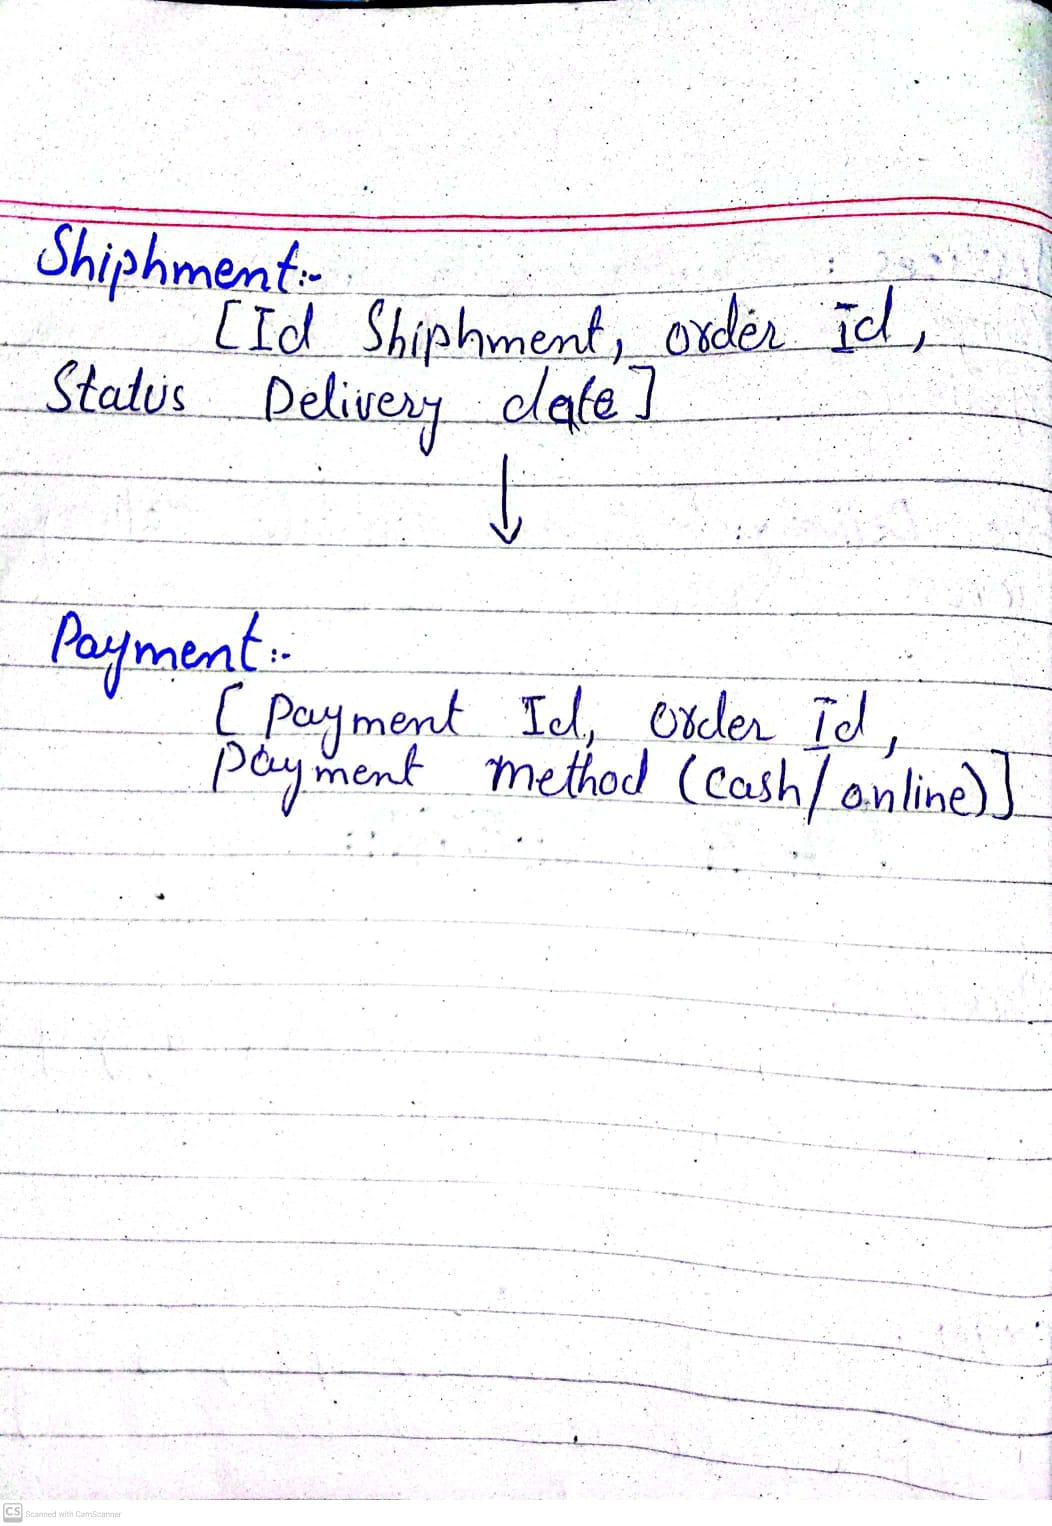 Shiphment:-
[Id Shiphment, order id,
Status Delivery date]
↓
Payment:-
[Payment Id, order id,
payment method (cash/online)]
CS Scanned with CamScanner